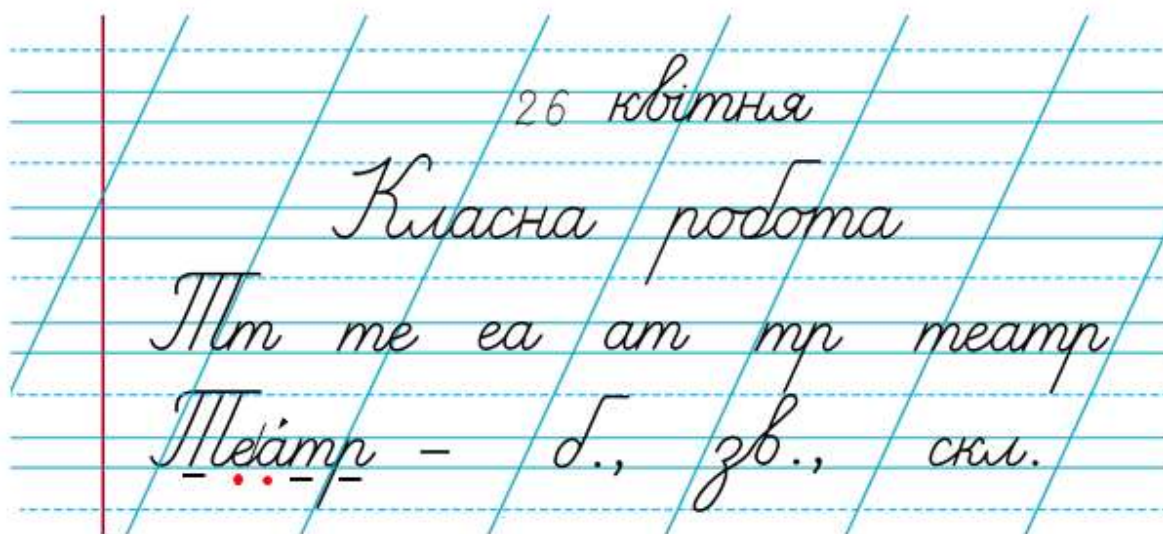 26 квітня
Класна робота
Тт те еа ат тр театр
Теа́тр – б., зв., скл.